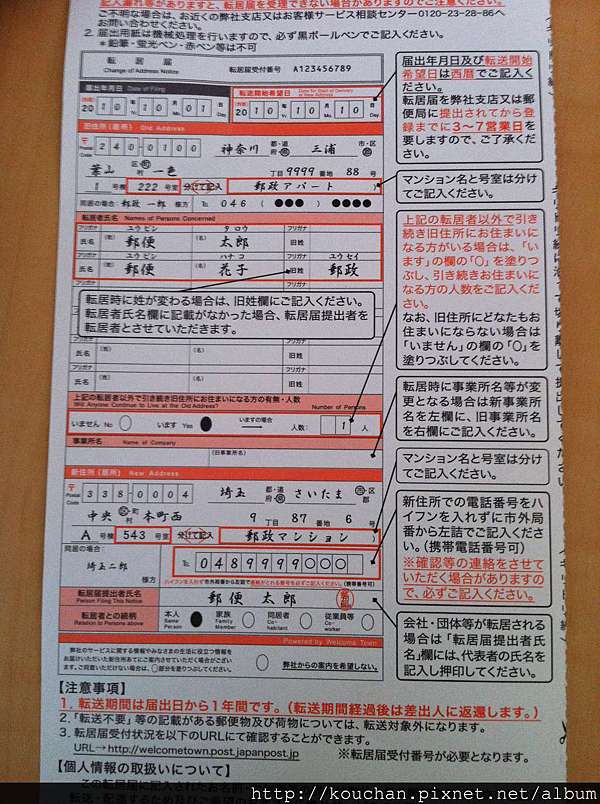 記入漏れ等がありますと、転居届を受理できない場合がありますのでご注意ください。
ご不明な場合は、お近くの弊社支店又はお客様サービス相談センター0120-23-28-86へ
お問い合わせください。
2. 届出用紙は機械処理を行いますので、必ず黒ボールペンでご記入ください。
＊鉛筆・蛍光ペン・赤ペン等は不可
転居届
Change of Address Notice
転居届受付番号 A123456789
届出年月日 Date of Filing
転送開始希望日
20 10 年 10 月 01 日
20 10 年 10 月 10 日
届出年月日及び転送開始
希望日は西暦でご記入く
ださい。
転居届を弊社支店又は郵
便局に提出されてから登
録までに3～7営業日を
要しますので、ご了承くだ
さい。
旧住所(居所) Old Address
〒 Postal Code 240-0100 神奈川 都・道 府・県 三浦 市・区 郡
葉山 区 町 村 一色 丁目 9999 番地 88 号
1 号棟 222 号室 分けて記入 郵政アパート
同居の場合: 郵政 一郎 様方 Tel. 046 (●●●) ●●●●
マンション名と号室は分け
てご記入ください。
転居者氏名 Names of Persons Concerned
フリガナ ユウビン タロウ フリガナ
氏名 (姓) 郵便 (名) 太郎 旧姓
フリガナ ユウビン ハナコ フリガナ ユウセイ
氏名 (姓) 郵便 (名) 花子 旧姓 郵政
転居時に姓が変わる場合は、旧姓欄にご記入ください。
転居者氏名欄に記載がなかった場合、転居届提出者を
転居者とさせていただきます。
氏名 (姓) (名) 旧姓
フリガナ フリガナ
氏名 (姓) (名) 旧姓
上記の転居者以外で引き
続き旧住所にお住まいに
なる方がいる場合は、「い
ます」の欄の「〇」を塗りつ
ぶし、引き続きお住まいに
なる方の人数をご記入くだ
さい。
なお、旧住所にどなたもお
住まいにならない場合は
「いません」の欄の「〇」を
塗りつぶしてください。
上記の転居者以外で引き続き旧住所にお住まいになる方の有無・人数
Will Anyone Continue to Live at the Old Address? Number of Persons
いません No います Yes いますの場合 人数: 1 人
事業所名 Name of Company
(旧事業所名)
転居時に事業所名等が変
更となる場合は新事業所
名を左欄に、旧事業所名
を右欄にご記入ください。
新住所(居所) New Address
〒 Postal Code 338-0004 埼玉 都・道 府・県 さいたま 市・区 郡
中央 区 町 村 本町西 9 丁目 87 番地 6 号
A 号棟 543 号室 分けて記入 郵政マンション
マンション名と号室は分け
てご記入ください。
同居の場合:
埼玉二郎
様方
Tel. 0489999〇〇〇
ハイフンを入れず市外局番から連絡がとれる番号を必ずご記入ください。(携帯番号可)
新住所での電話番号をハ
イフンを入れずに市外局
番から左詰でご記入くださ
い。(携帯電話番号可)
※確認等の連絡をさせて
いただく場合がありますの
で、必ずご記入ください。
転居届提出者氏名
Person Filing This Notice
郵便太郎
転居者との続柄
Relation to Persons above
本人 Same Person 家族 Family Member 同居者 Co-habitant 従業員等 Co-worker
会社・団体等が転居される
場合は「転居届提出者氏
名」欄には、代表者の氏名
を記入し押印してください。
Powered by Welcome Town
弊社のサービスに関する情報やみなさまの生活に役立つ情報を
お届けいただいた新住所あてにご案内させていただく場合がござい
ます。ご同意いただけない場合は、〇部分を塗りつぶしてください。
弊社からの案内を希望しない。
【注意事項】
1. 転送期間は届出日から1年間です。(転送期間経過後は差出人に返還します。)
2. 「転送不要」等の記載がある郵便物及び荷物については、転送対象外になります。
3. 転居届受付状況を以下のURLにて確認することができます。
URL→http://welcometown.post.japanpost.jp ※転居届受付番号が必要となります。
【個人情報の取扱いについて】
この転居届に記入されたお名前・
http://kouchan.pixnet.net/album